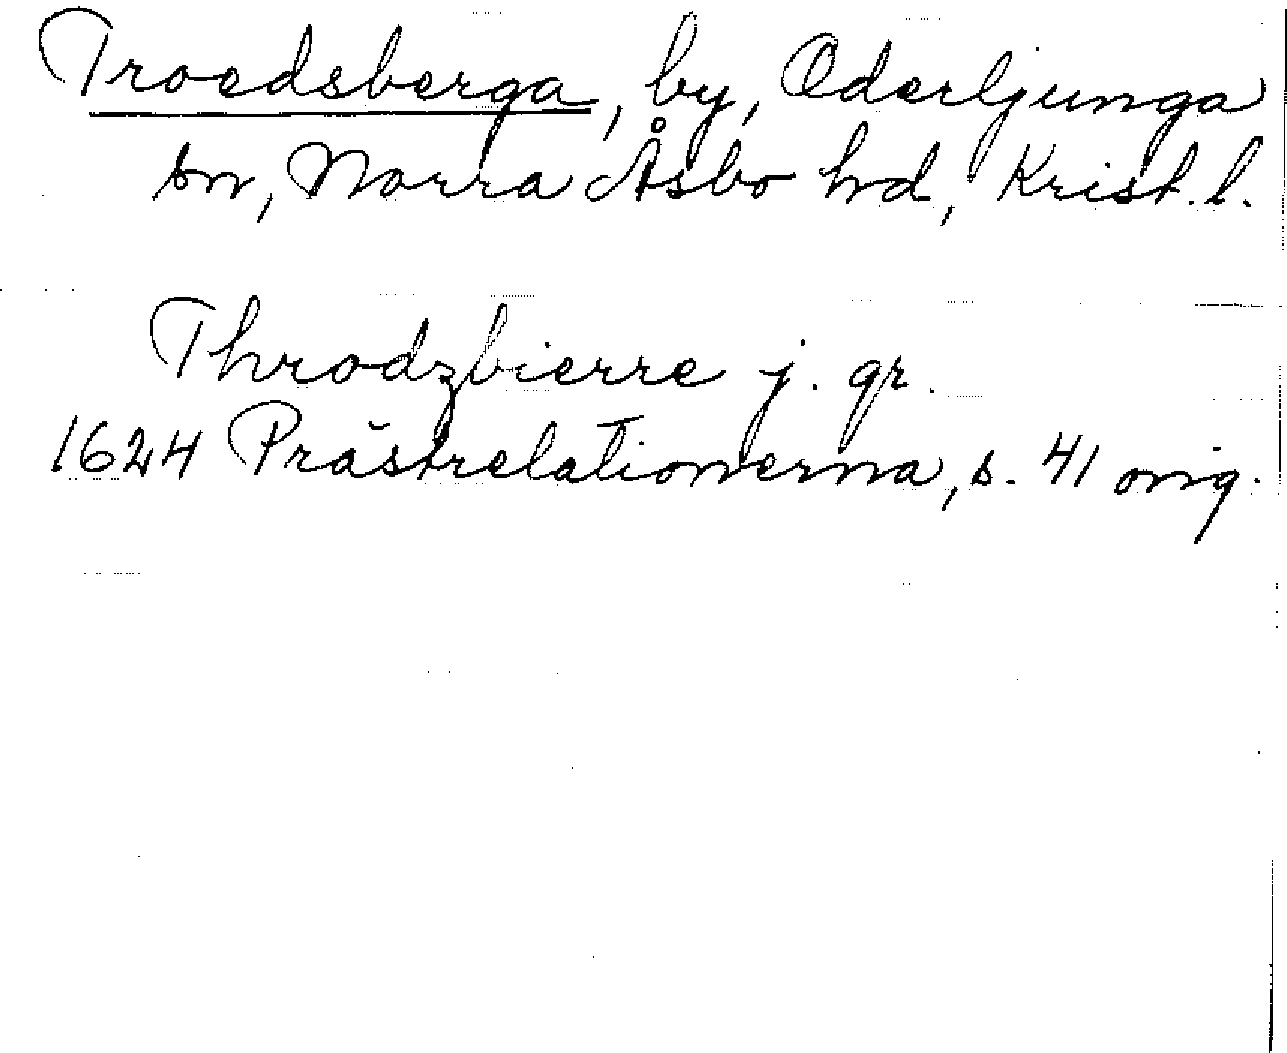 Troedsberga, by, Oderljunga
sn, Norra Åsbo hd, Krist. l.
Throdzbierre j. gr.
1624 Prästrelationerna, s. 41 orig.